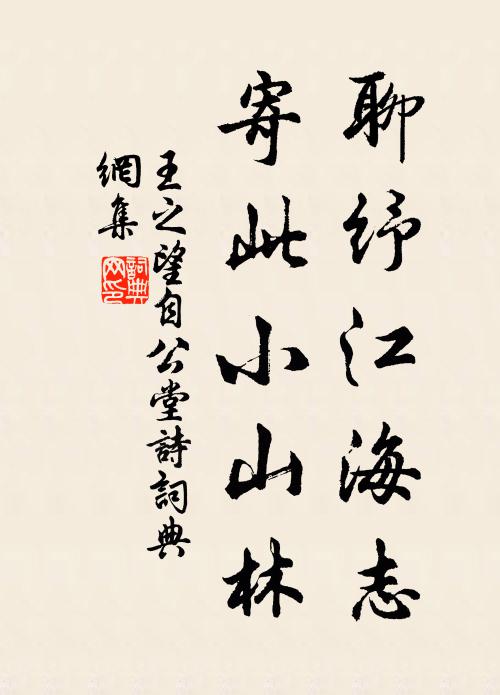 聊紓江海志
寄此小山林
王之望自公堂詩詞典
網集
詞典
网印